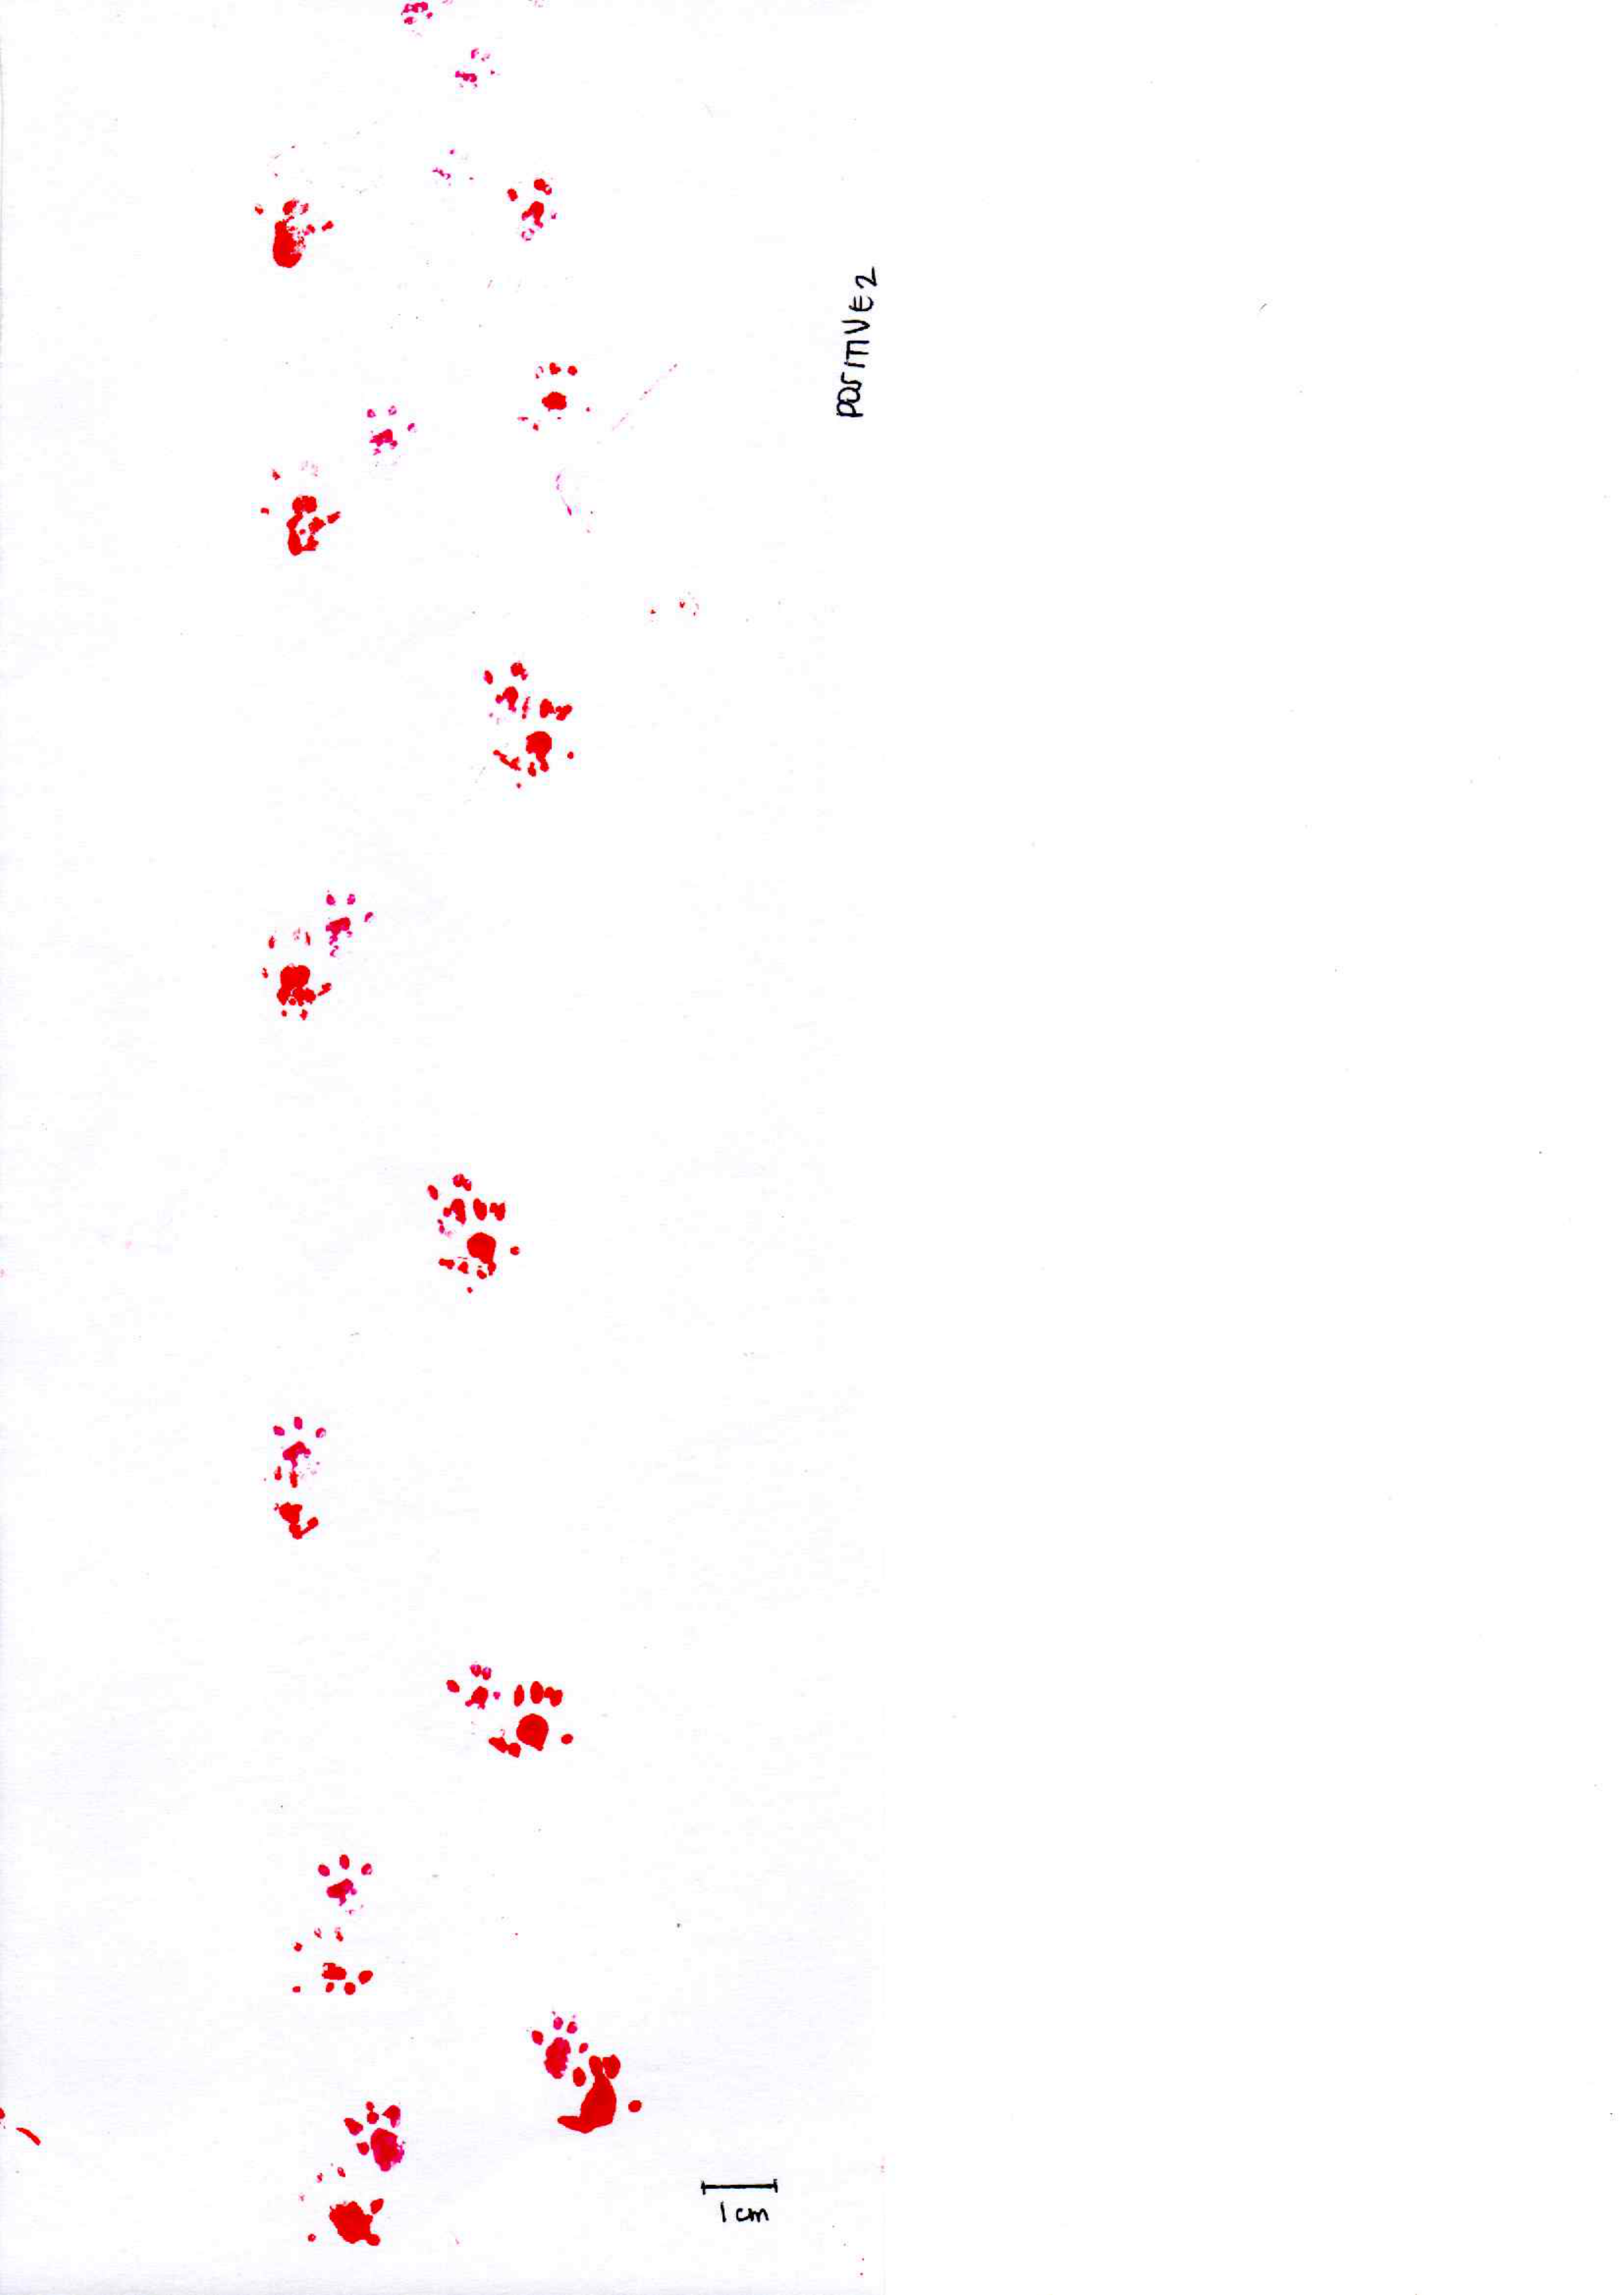 POSITIVE 2
1 cm